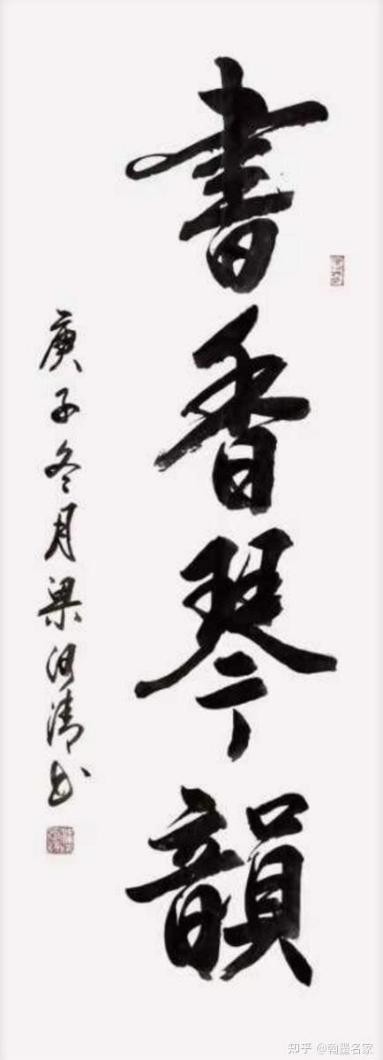 書香琴韻
庚子冬月梁河清书
知乎 @翰墨名家